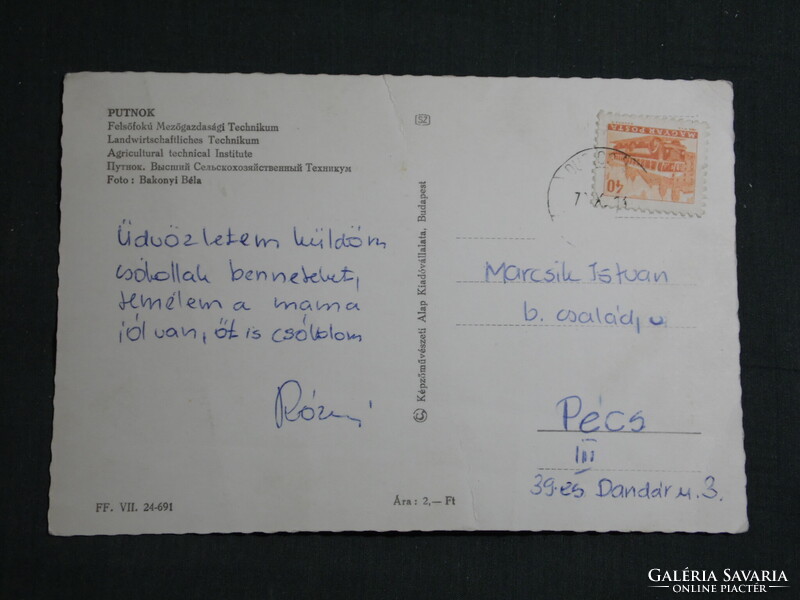 PUTNOK
Felsőfokú Mezőgazdasági Technikum
Landwirtschaftliches Technikum
Agricultural technical Institute
Путнок. Высший Сельскохозяйственный Техникум
Foto : Bakonyi Béla
Üdvözletem küldöm
csókollak benneteket,
remélem a mama
jól van, őt is csókolom
Rózsi
FF. VII. 24-691
Ára : 2,— Ft
Képzőművészeti Alap Kiadóvállalata, Budapest
MAGYAR POSTA
40
Marcsik István
b. család,
Pécs
III
39-es Dandár u. 3.
GALÉRIA SAVARIA
ONLINE PIACTÉR